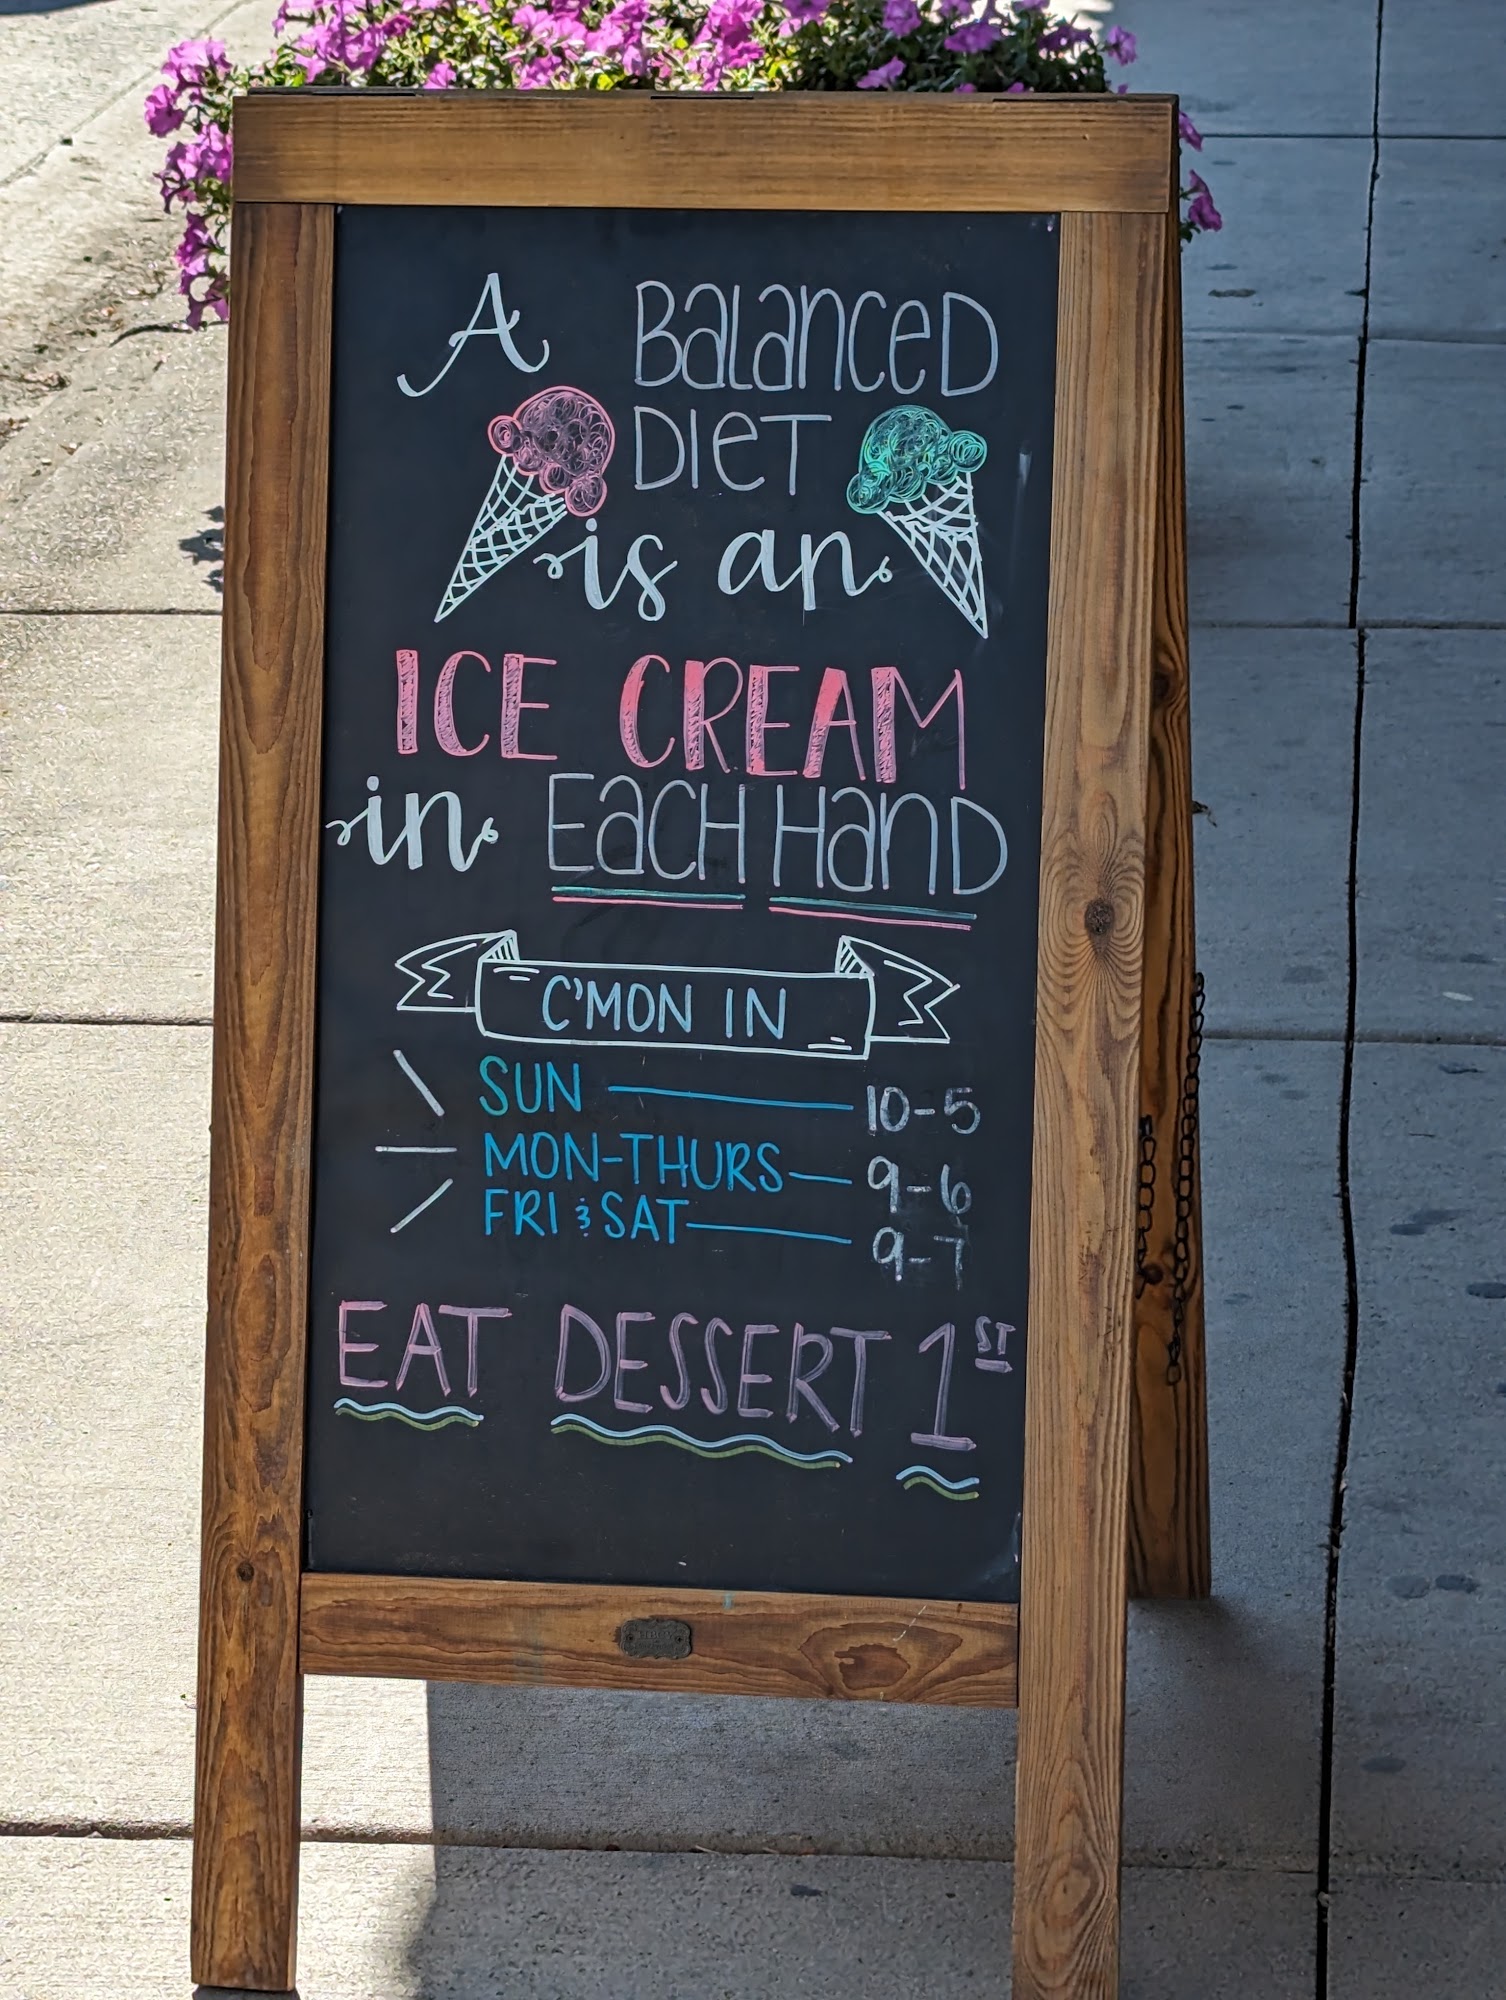 A BALANCED
DIET
is an
ICE CREAM
in EACH HAND
C'MON IN
SUN — 10-5
MON-THURS — 9-6
FRI & SAT — 9-7
EAT DESSERT 1ST